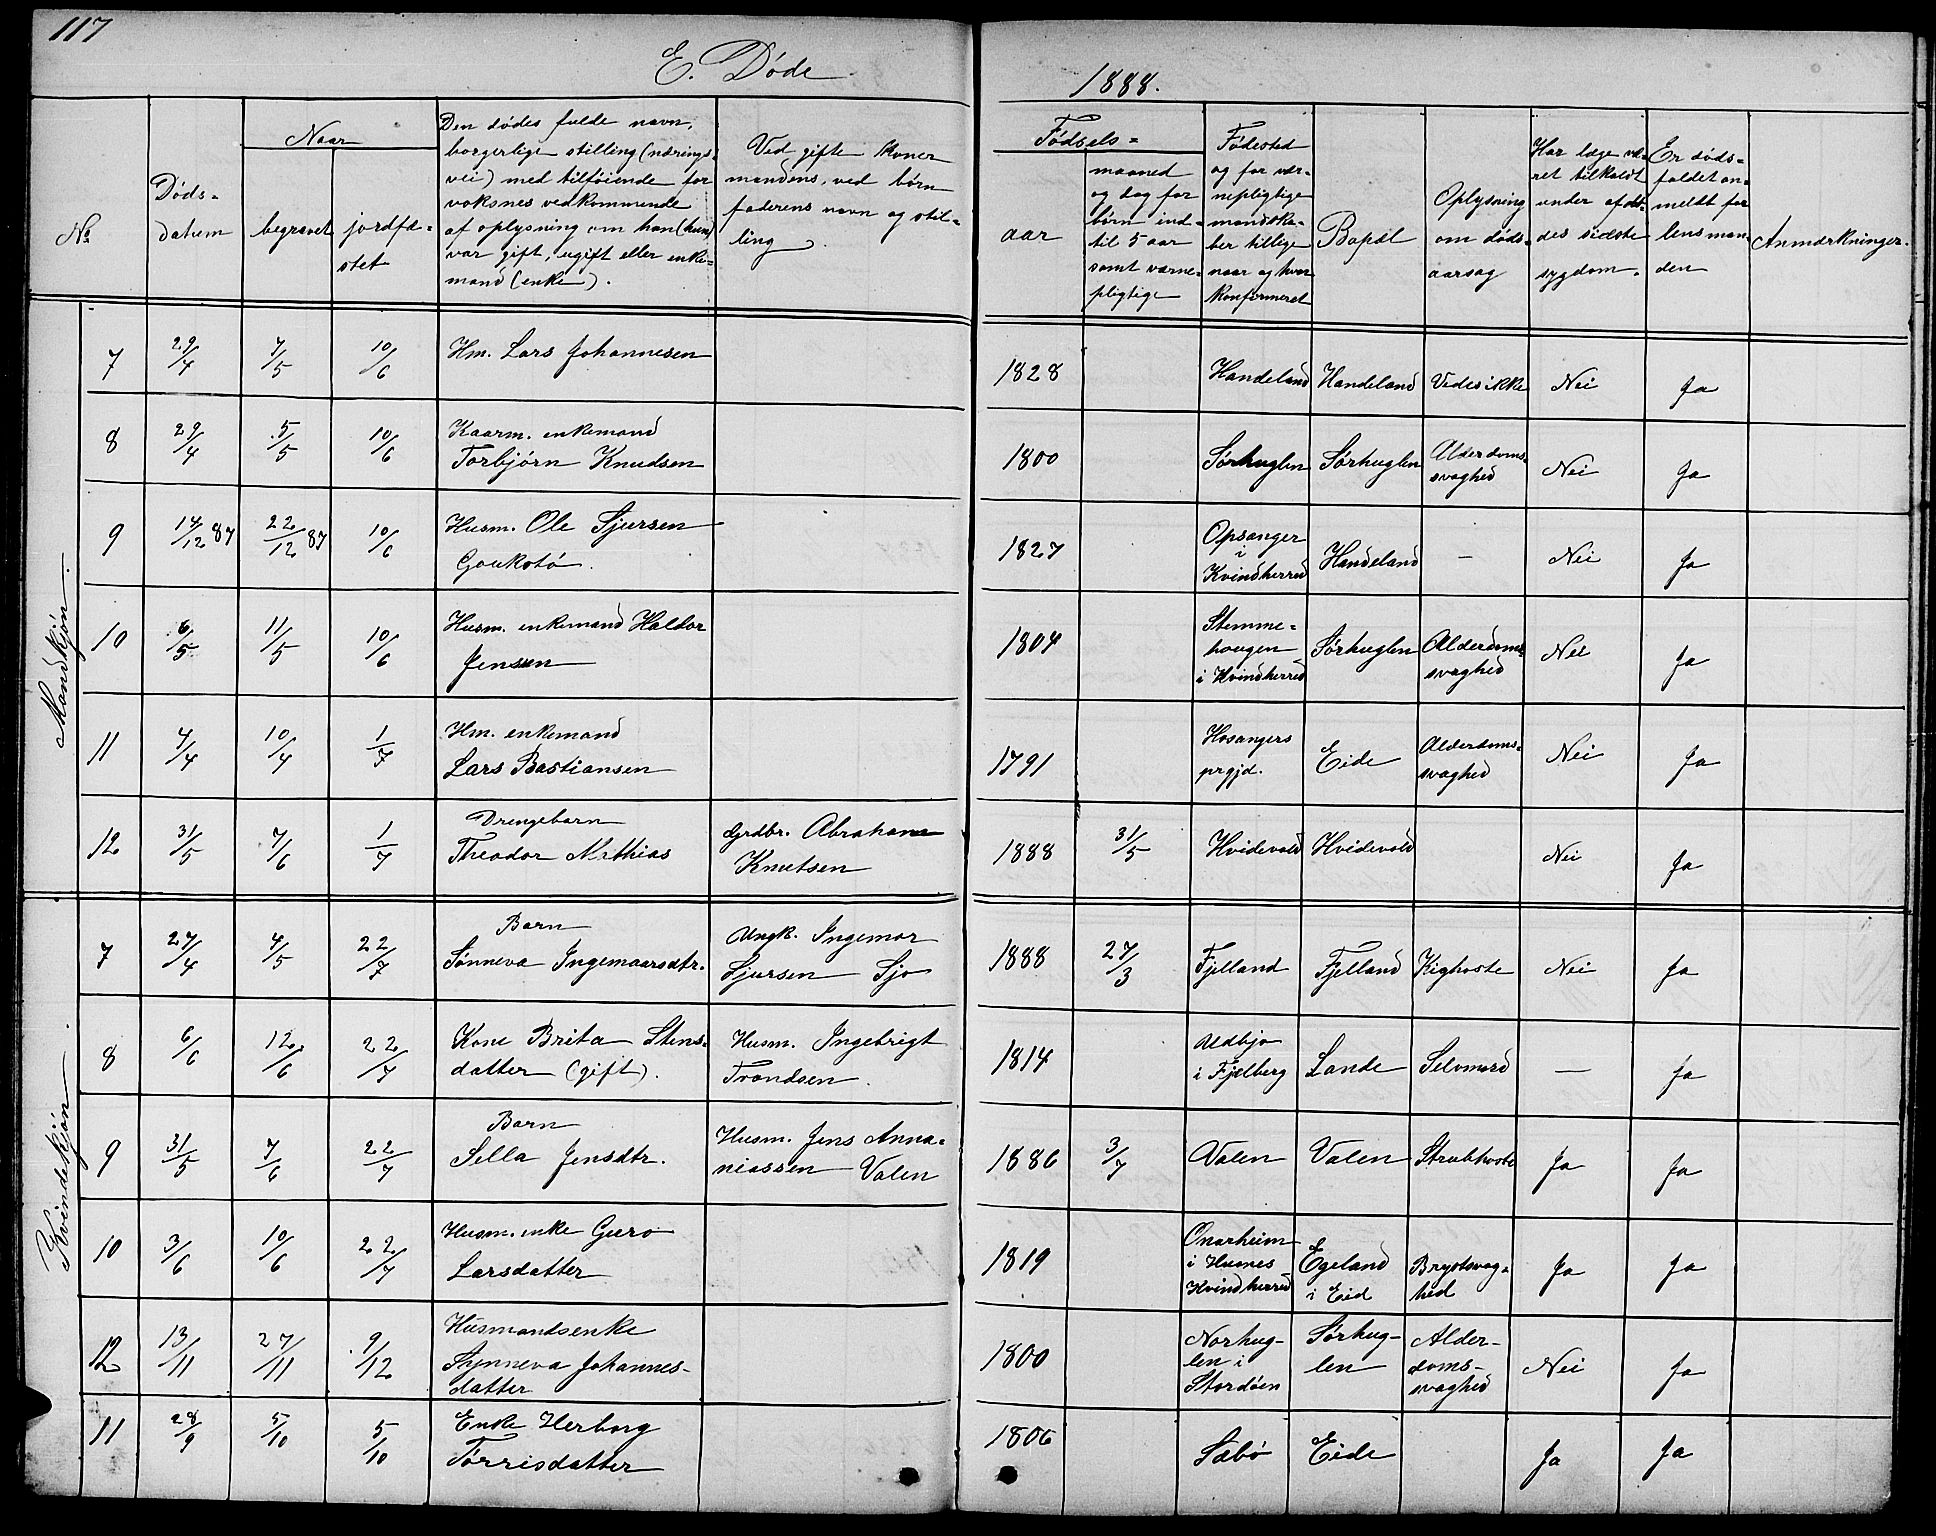 117
E. Døde
1888.
No
Døds-
datum
Naar
begravet
jordfæ-
stet
Den dødes fulde navn,
borgerlige stilling (nærings-
vei) med tilføiende for
voksnes vedkommende
af oplysning om han (hun)
var gift, ugift eller enke-
mand (enke).
Ved gifte koner
mandens, ved børn
faderens navn og stil-
ling
Fødsels-
aar
maaned
og dag for
børn ind-
til 5 aar
samt værne-
pligtige
Fødested
og for vær-
nepligtige
mandska-
ber tillige
naar og hvor
konfirmeret
Bopæl
Oplysning
om døds-
aarsag
Har læge væ-
ret tilkaldt
under afdø-
des sidste
sygdom.
Er døds-
faldet an-
meldt for
lensman-
den
Anmærkninger.
Mandkjøn.
7 29/4 7/5 10/6 Hm. Lars Johannesen 1828 Handeland Handeland Vides ikke Nei Ja
8 29/4 5/5 10/6 Kaarm. enkemand
Torbjørn Knudsen 1800 Sørhuglen Sørhuglen Alderdoms-
svaghed Nei Ja
9 14/12 87 22/12 87 10/6 Husm. Ole Sjursen
Gaukstø. 1827 Opsanger
i
Kvindherred Handeland — Nei Ja
10 6/5 11/5 10/6 Husm. enkemand Haldor
Jensen 1804 Stemme-
hougen
i Kvindherred Sørhuglen Alderdoms-
svaghed Nei Ja
11 4/4 10/4 1/7 Hm. enkemand
Lars Bastiansen 1791 Hosangers
prgjd. Eide Alderdoms-
svaghed Nei Ja
12 31/5 7/6 1/7 Drengebarn
Theodor Mathias Grdbr. Abraham
Knutsen 1888 31/5 Hvidevold Hvidevold Nei Ja
Kvindekjøn.
7 27/4 4/5 22/7 Barn
Sønneva Ingemaarsdtr. Ungk. Ingemar
Sjursen Sjo 1888 27/3 Fjelland Fjelland Kighoste Nei Ja
8 6/6 12/6 22/7 Kone Brita Stens-
datter (gift). Husm. Ingebrigt
Trondsen. 1814 Uldbjo
i Fjelberg Lande Selvmord — Ja
9 31/5 7/6 22/7 Barn
Sella Jensdtr. Husm. Jens Anna-
niassen Valen 1886 3/7 Valen Valen Strubhoste Ja Ja
10 3/6 10/6 22/7 Husm. enke Guro
Larsdatter 1819 Onarheim
i Husnes
Kvindherred Egeland
i Eid Brystsvag-
hed Ja Ja
12 13/11 27/11 9/12 Husmandsenke
Synneva Johannes-
datter 1800 Norhug-
len i
Stordøen Sørhug-
len Alder-
doms-
svaghed Nei Ja
11 28/9 5/10 5/10 Enke Herborg
Tørrisdatter 1806 Sæbø Eide Ja Ja